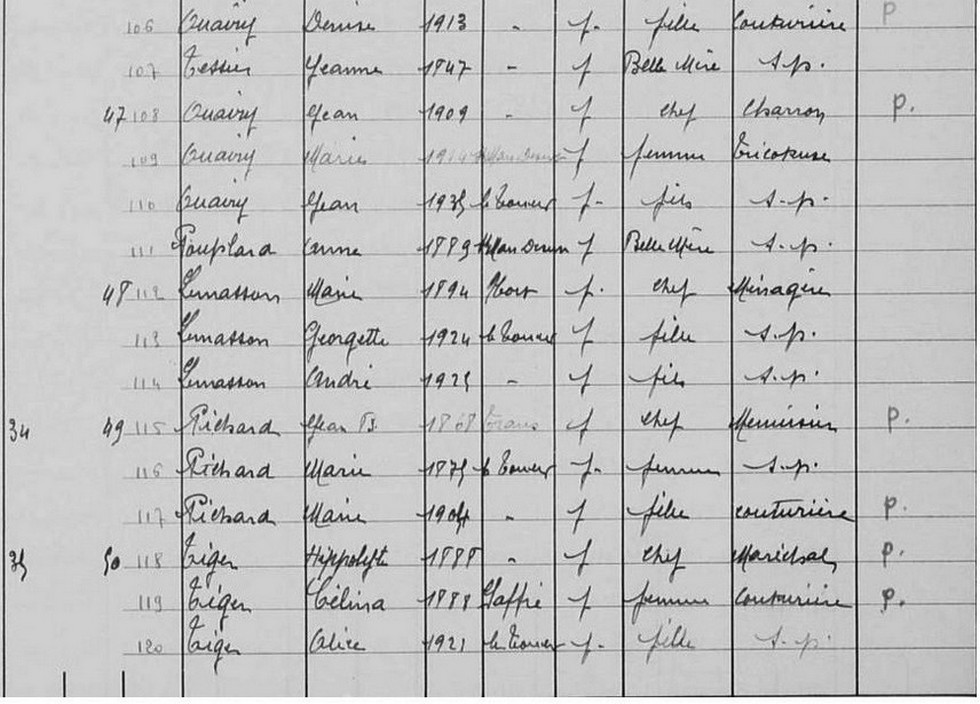 106 Quairy Denise 1913 - f. fille Couturière P
107 Tessier Jeanne 1847 - f Belle Mère S.p.
47 108 Quairy Jean 1909 - f chef Charron P.
109 Quairy Marie f femme Tricoteuse
110 Quairy Jean 1935 f. fils S.p.
111 Pouplard Anne 1889 f Belle Mère S.p.
48 112 Lemasson Marie 1894 f. chef Ménagère
113 Lemasson Georgette 1924 f fille S.p.
114 Lemasson André 1925 - f fils S.p.
34 49 115 Richard Jean B. 1868 Trans f chef Menuisier P.
116 Richard Marie 1875 f. femme S.p.
117 Richard Marie 1904 - f fille couturière P.
35 50 118 Tiger Hippolyte 1888 - f chef Maréchal P.
119 Tiger Célina 1888 f femme Couturière P.
120 Tiger Alice 1921 f. fille S.p.